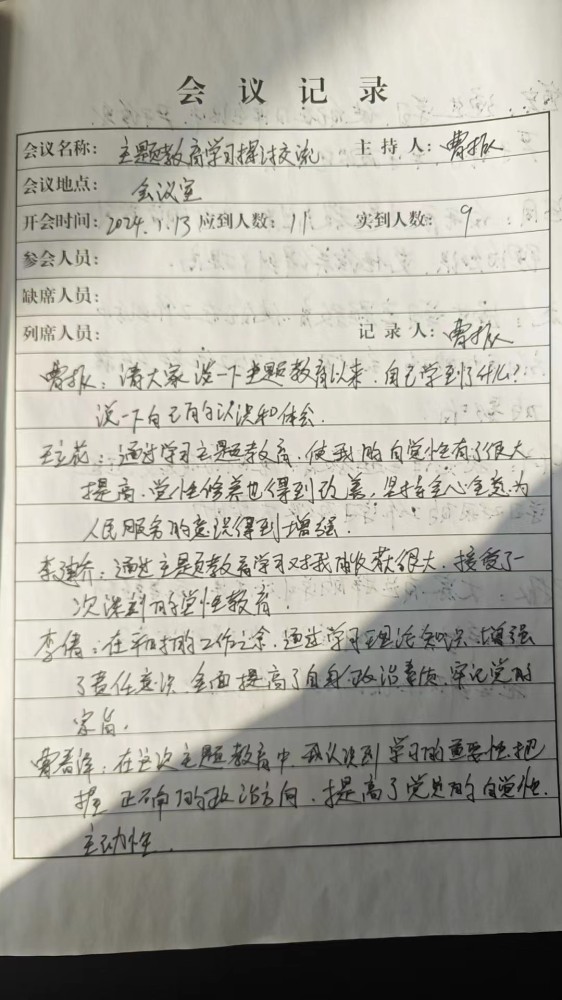 会议记录
会议名称： 主题教育学习探讨交流 主持人： 曹振
会议地点： 会议室
开会时间： 2024.1.13 应到人数： 11 实到人数： 9
参会人员：
缺席人员：
列席人员： 记录人： 曹振
曹振：请大家说一下主题教育以来，自己学到了什么？
说一下自己的认识和体会.
王立花：通过学习主题教育，使我的自觉性有了很大
提高，党性修养也得到改善，坚持全心全意为
人民服务的意识得到增强.
李建乔：通过主题教育学习对我的收获很大，接受了一
次深刻的党性教育.
李倩：在平时的工作之余，通过学习理论知识，增强
了责任意识，全面提高了自身政治素质，牢记党的
宗旨.
曹春泽：在这次主题教育中，我认识到学习的重要性，把
握正确的政治方向，提高了党员的自觉性.
主动性.